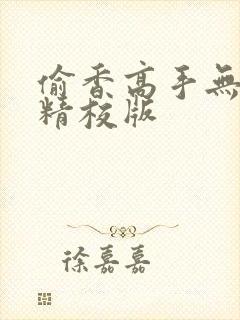 偷香高手無
精校版
徐嘉嘉